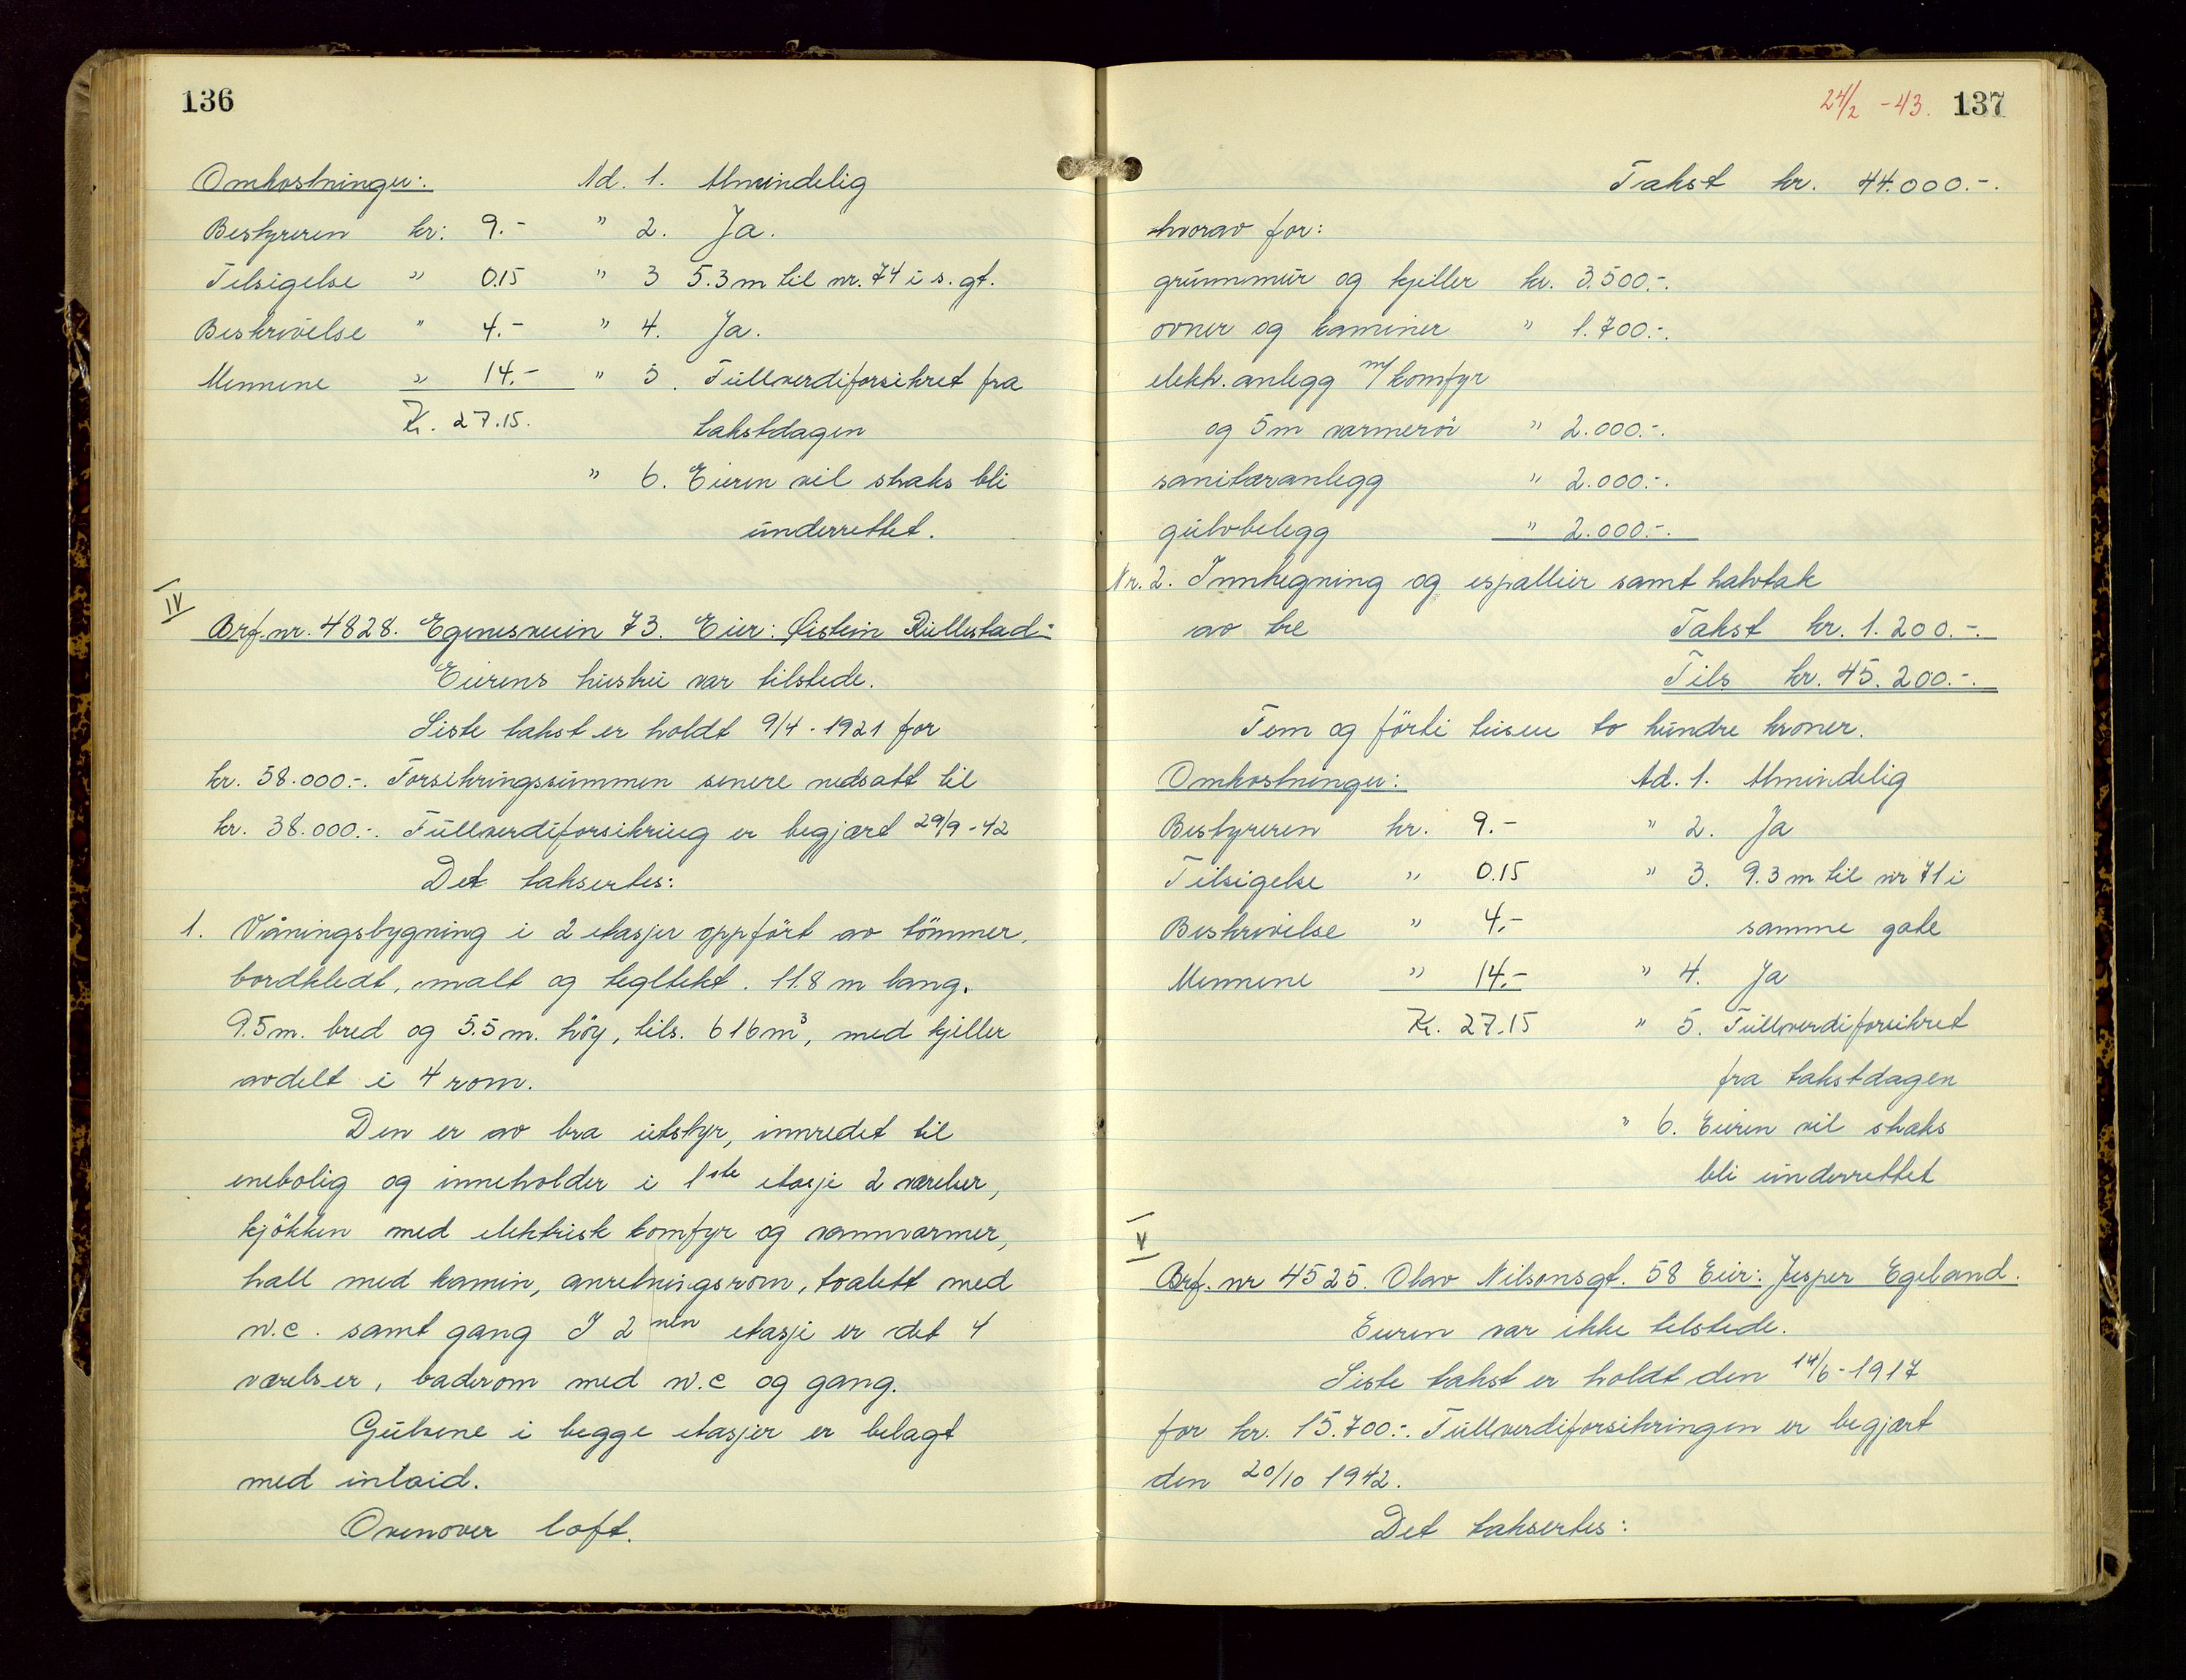 136
Omkostninger: Ad. 1. Almindelig
Bestyreren kr: 9.- " 2. Ja.
Tilsigelse " 0.15 " 3 5.3 m til nr. 74 i s. gt.
Beskrivelse " 4.- " 4. Ja.
Mennene " 14.- " 5. Fullverdiforsikret fra
Kr. 27.15. takstdagen
" 6. Eieren vil straks bli
underrettet.
IV
Brf. nr. 4828. Egenesveien 73. Eier: Øistein Rullestad.-
Eierens hustru var tilstede.
Siste takst er holdt 9/4 - 1921 for
kr. 58.000.-. Forsikringssummen senere nedsatt til
kr. 38.000.-. Fullverdiforsikring er begjært 29/9 - 42
Det taksertes:
1. Våningsbygning i 2 etasjer oppført av tömmer,
bordkledt, malt og tegltekt. 11.8 m lang.
9.5 m. bred og 5.5 m. höy, tils. 616 m³, med kjeller
avdelt i 4 rom.
Den er av bra utstyr, innredet til
enebolig og inneholder i 1ste etasje 2 værelser,
kjökken med elektrisk komfyr og vannvarmer,
hall med kamin, anretningsrom, toalett med
w.c. samt gang I 2nen etasje er det 4
værelser, baderom med w.c og gang.
Gulvene i begge etasjer er belagt
med inlaid.
Ovenover loft.
24/2 - 43. 137
Takst kr. 44.000.-.
hvorav for:
grunnmur og kjeller kr. 3.500.-.
ovner og kaminer " 1.700.-.
elektr. anlegg m/ komfyr
og 5 m varmerör " 2.000.-.
sanitæranlegg " 2.000.-.
gulvbelegg " 2.000.-.
Nr. 2. Innhegning og espallier samt halvtak
av tre Takst kr. 1.200.-.
Tils kr. 45.200.-.
Fem og förti tusen to hundre kroner.
Omkostninger: Ad. 1. Almindelig
Bestyreren kr. 9.- " 2. Ja
Tilsigelse " 0.15 " 3. 9.3 m til nr 71 i
Beskrivelse " 4.- samme gate
Mennene " 14.- " 4. Ja
Kr. 27.15 " 5. Fullverdiforsikret
fra takstdagen
" 6. Eieren vil straks
bli underrettet
V
Brf. nr 4525. Olav Nilsensgt. 58 Eier: Jesper Egeland.
Eieren var ikke tilstede.
Siste takst er holdt den 14/6 - 1917
for kr. 15.700.-. Fullverdiforsikringen er begjært
den 20/10 1942.
Det taksertes: